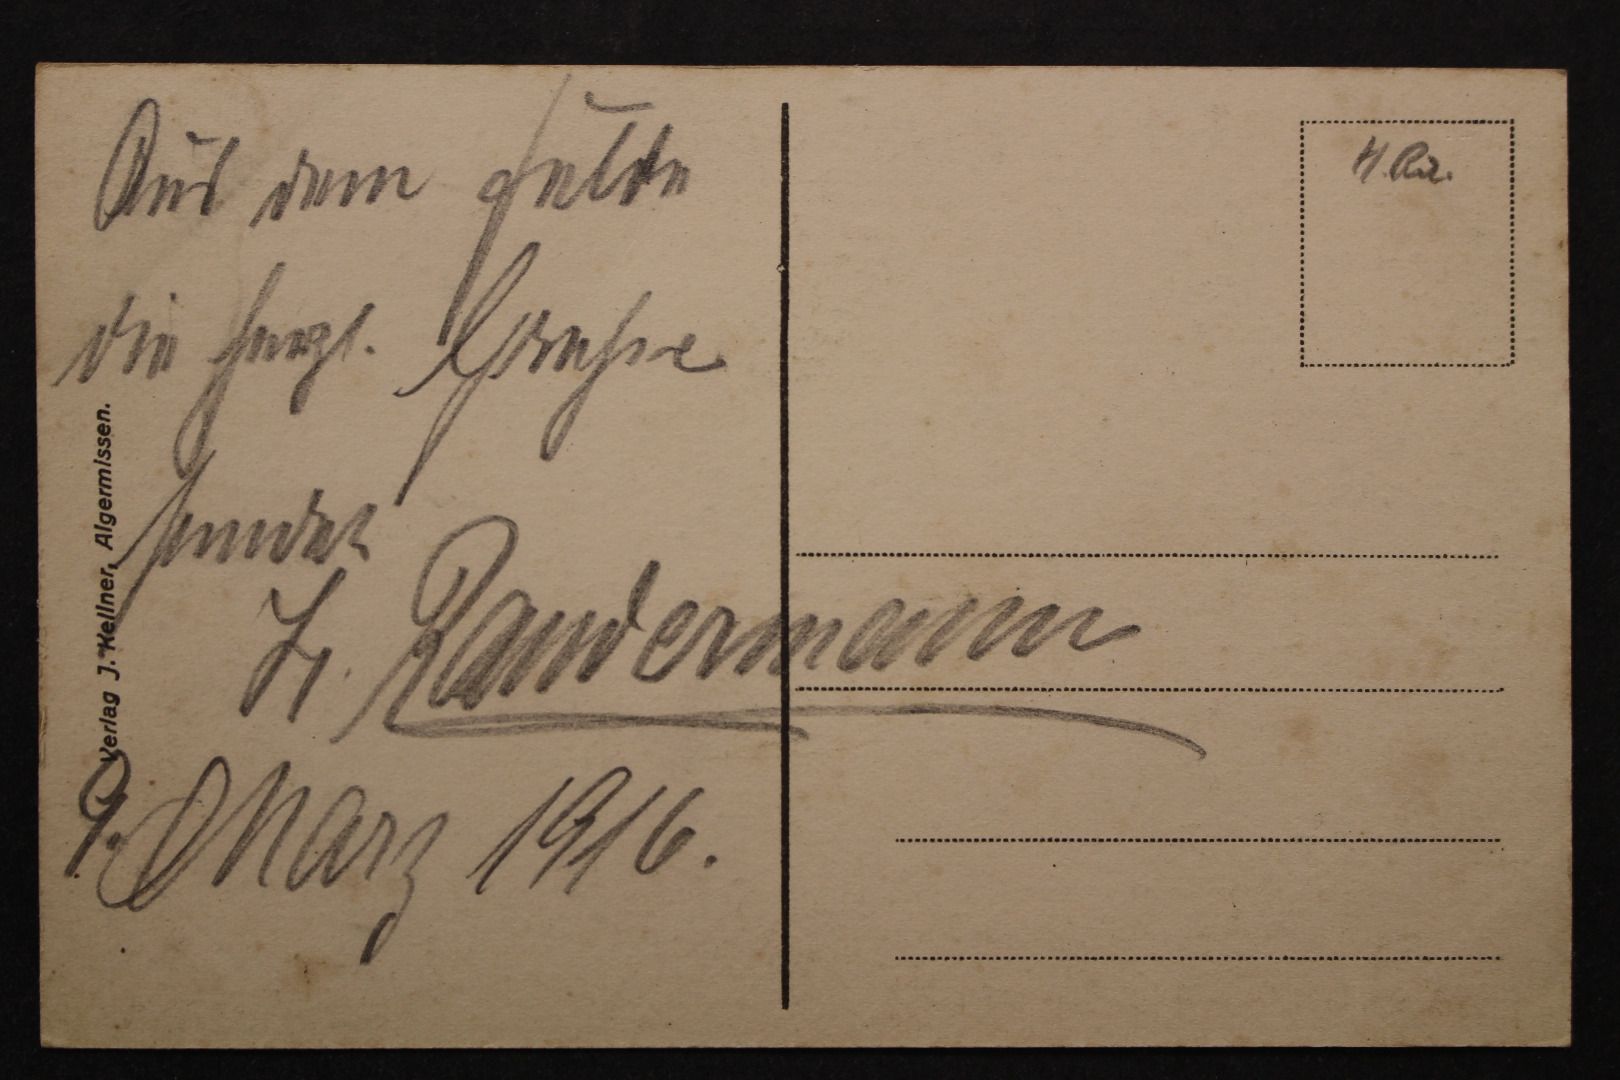 Aus dem Felde
die herzl. Gruesse
sendet
Fr. Randermann
9. März 1916.
Verlag J. Kellner, Algermissen.